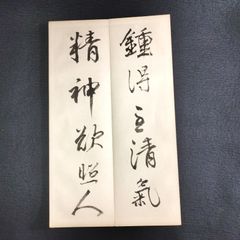 鍾得至清氣
精神欲照人